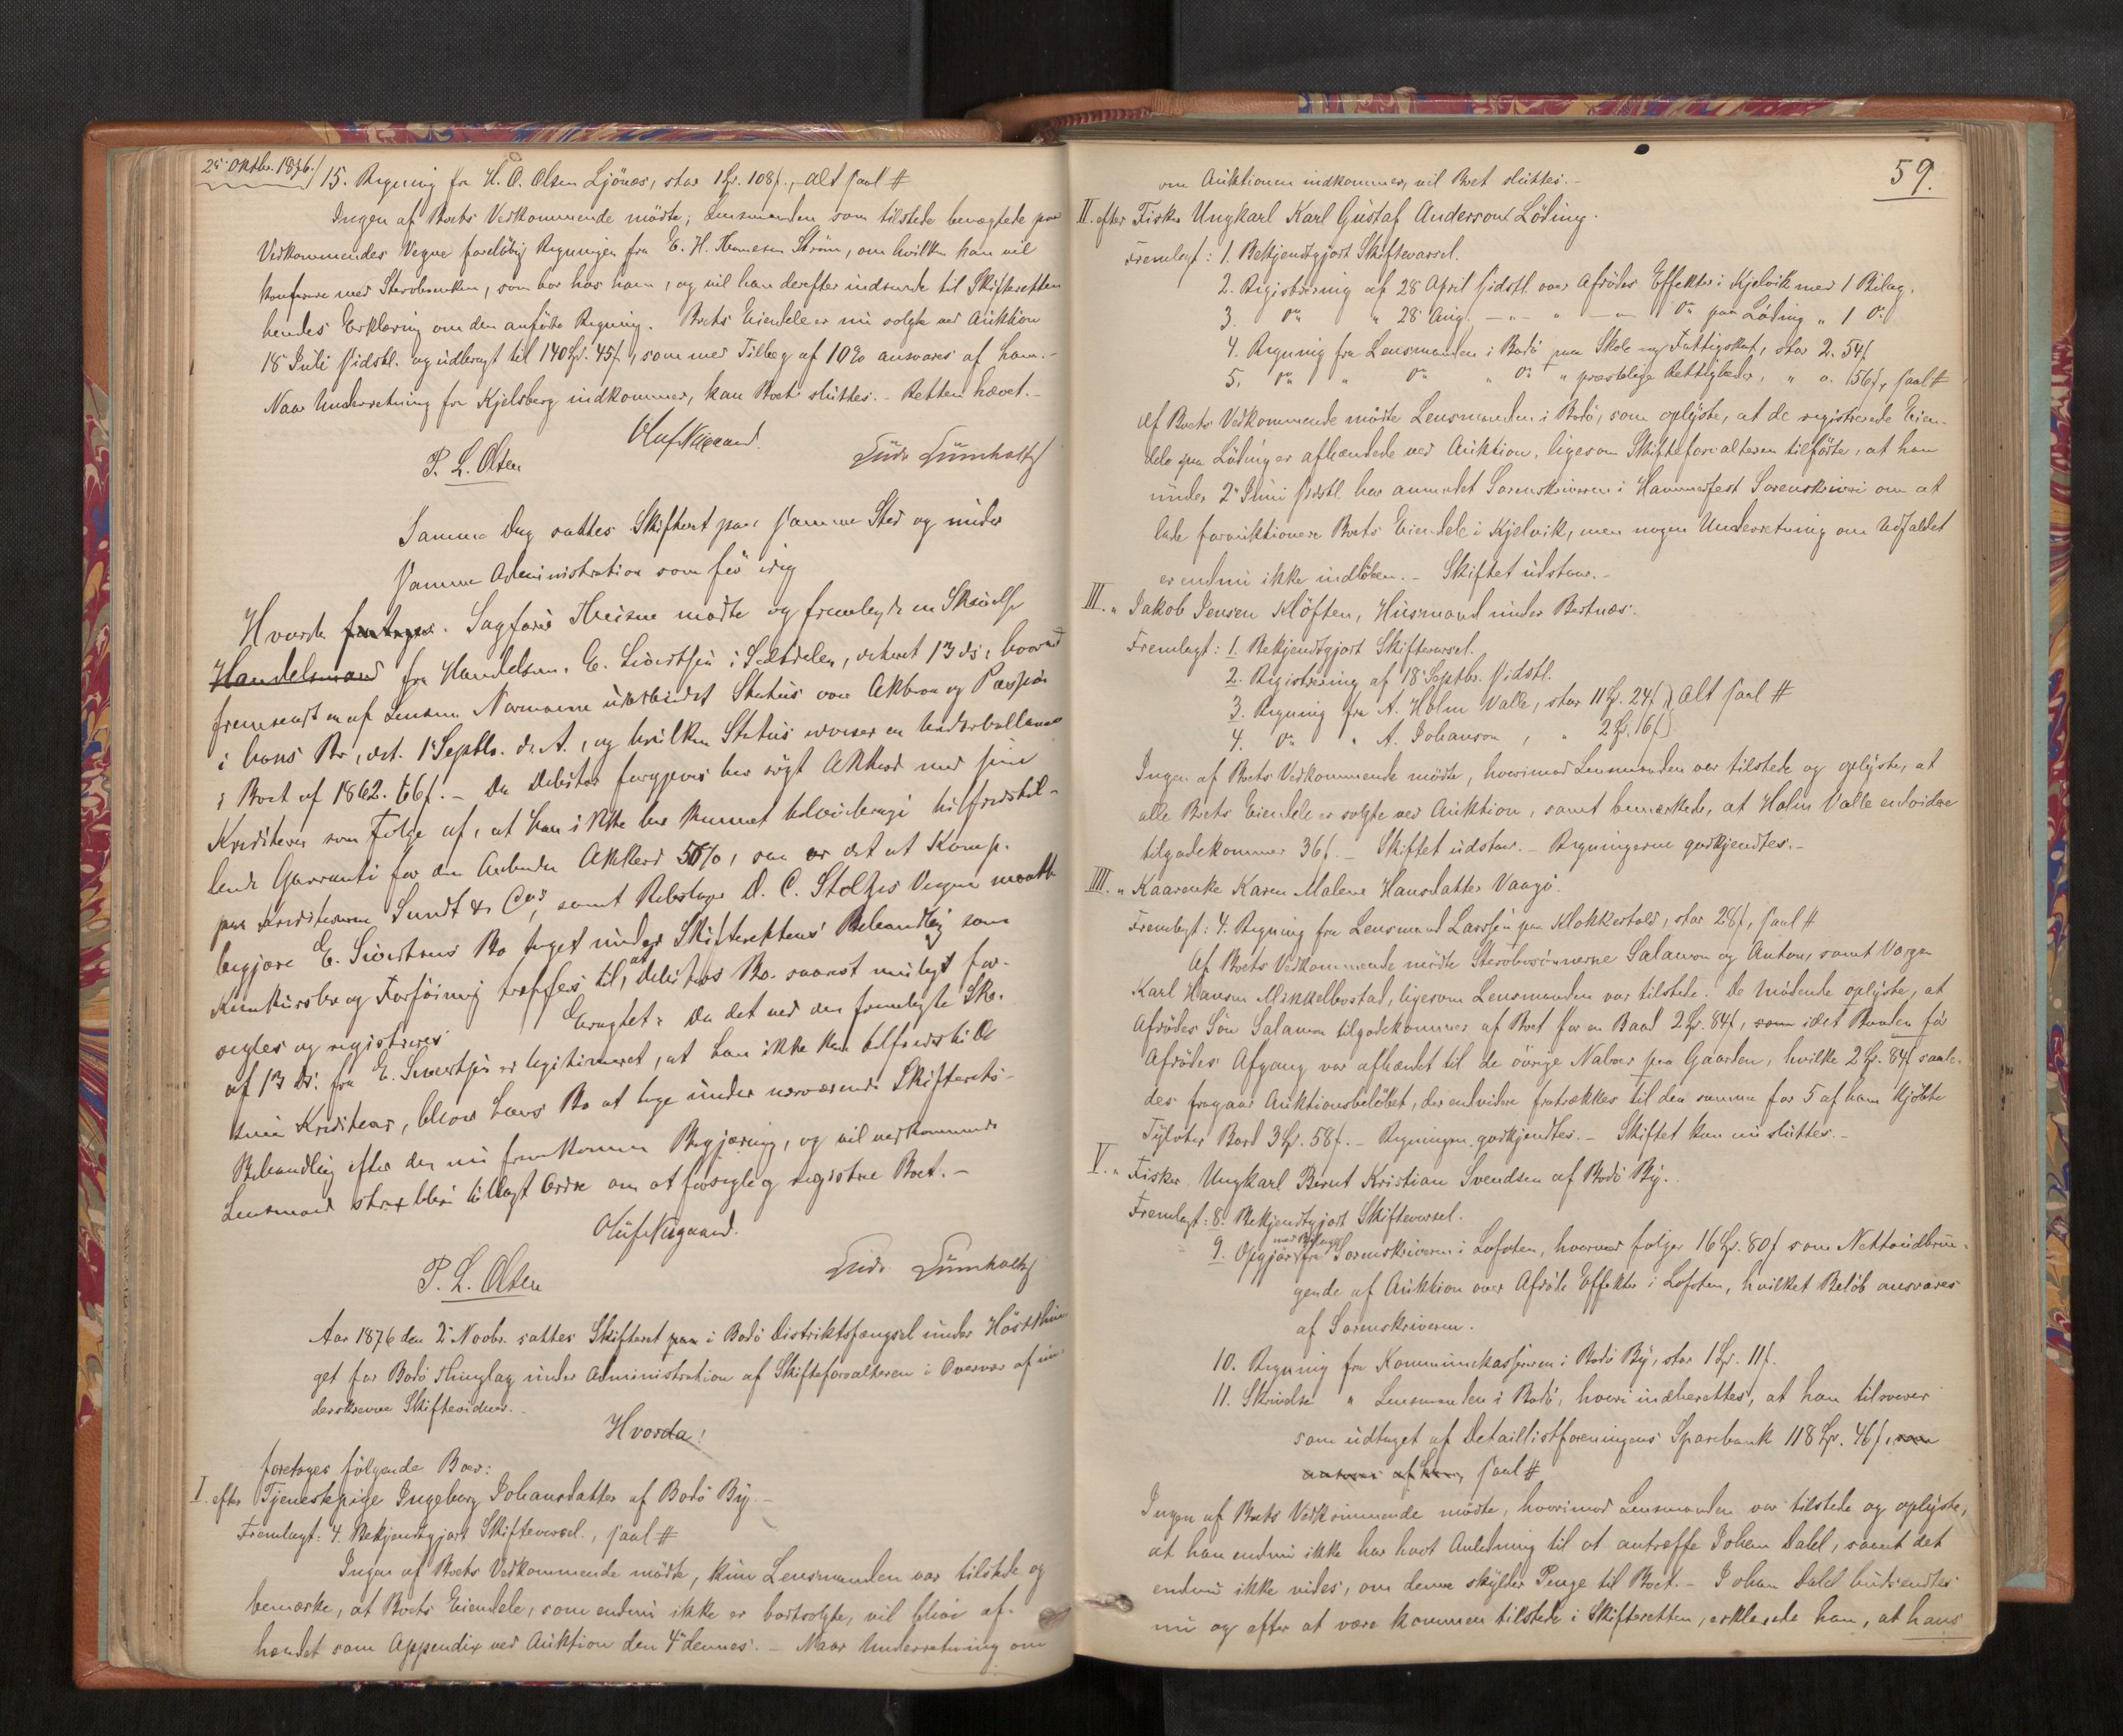 25 Oktbr. 1876.
15. Regning fra H. O. Olsen Ljönæs, stor 1 Sp. 108 s., alt saal #
Ingen af Boets Vedkommende mödte; Lensmanden som tilstede benægtede paa
Vedkommendes Vegne forelöbig Regningen fra E. H. Hansen Ström, om hvilken han vil
konferere med Sterboenken, som bor hos ham, og vil han derefter indsende til Skifteretten
hendes Erklæring om den anförte Regning. Boets Eiendele er nu solgte ved Auktion
18 Juli sidstl. og udbragt til 140 Sp. 45 s, som med Tillæg af 10% ansvares af ham.-
Naar Underretning fra Kjelsberg indkommer, kan Boet sluttes.- Retten hævet.-
Oluf Nergaard.
P. L. Olsen
Samme Dag sattes Skifteret paa samme Sted og under
samme Administration som för
Hvorda foretages. Sagförer Theisen mödte og fremlagde en Skrivelse
Handelsmand fra Handelsm. E. Sivertsen i Saltdalen, dateret 13 ds, hvorved
fremsendt en af Lensm. Normann udarbeidet Status over Aktiva og Passiva
i hans Bo, dat. 1 Septbr. d. A., og hvilken Status udviser en Underballance
i Boet af 1862. 66 s.- Da Debitor forgjæves har sögt Akkord med sine
Kreditorer som Fölge af, at han ikke har kunnet tilveiebringe tilfredsstil-
lende Garranti for den Anbudne Akkord 50%, saa er det at Komp.
paa Kreditorerne Sundt & Co's, samt Rebslager D. C. Stoltzes Vegne maatte
begjære E. Sivertsens Bo taget under Skifterettens Behandling som
Konkursbo og Forföining træffes til, at Debitors Bo snarest muligt for-
segles og registreres Eragtet: Da det ved den fremlagte Skr.
af 13 ds. fra E. Sivertsen er legitimeret, at han ikke kan tilfredsstille
sine Kreditorer, bliver hans Bo at tage under nærværende Skifterets-
Behandling efter den nu fremkomne Begjæring, og vil vedkommende
Lensmand strax blive tillagt Ordre om at forsegle og registrere Boet.-
Oluf Nergaard.
P. L. Olsen
Aar 1876 den 2 Novbr. sattes Skifteret paa i Bodö Distriktsfængsel under Höstthin-
get for Bodö Thinglag under Administration af Skifteforvalteren i Overvær af un-
derskrevne Skiftevidner.
Hvorda!
foretages fölgende Boer:
I. efter Tjenestepige Ingeborg Johansdatter af Bodö By.-
Fremlagt: 4. Bekjendtgjort Skiftevarsel., saal #
Ingen af Boets Vedkommende mödte, kun Lensmanden var tilstede og
bemærke, at Boets Eiendele, som endnu ikke er bortsolgte, vil blive af-
hændet som Appendix ved Auktion den 4 dennes.- Naar Underretning om
59.
om Auktionen indkommer, vil Boet sluttes.-
II. efter Fisker Ungkarl Karl Gustaf Andersont Löding.
Fremlagt: 1. Bekjendtgjort Skiftevarsel.
2. Registrering af 28 April sidstl. over Afdödes Effekter i Kjelvik med 1 Bilag.
3. Do " 28 Aug. -"- " -"- Do paa Löding " 1 Do
4. Regning fra Lensmanden i Bodö paa Skole og Fattigskat, stor 2. 54 s
5. Do " Do " Do " præstelige Rettigheder, " o. 156 s, saal #
Af Boets Vedkommende mödte Lensmanden i Bodö, som oplyste, at de registrerede Eien-
dele paa Löding er afhændede ved Auktion, ligesom Skifteforvalteren tilförte, at han
under 2 Juni sidstl. har anmodet Sorenskriveren i Hammerfest Sorenskriveri om at
lade forauktionere Boets Eiendele i Kjelvik, men nogen Underretning om Udfaldet
er endnu ikke indlöben.- Skiftet udstaar.-
III. " Jakob Jensen Klöften, Husmand under Bertnæs.
Fremlagt: 1. Bekjendtgjort Skiftevarsel.
2. Registrering af 18 Septbr. sidstl.
3. Regning fra A. Holm Valle, stor 11 Sp. 24 s } alt saal #
4. Do " A. Johanson, " 2 Sp. 16 s
Ingen af Boets Vedkommende mödte, hvorimod Lensmanden var tilstede og oplyste, at
alle Boets Eiendele er solgte ved Auktion, samt bemærkede, at Holm Valle endvidere
tilgodekommer 36 s.- Skiftet udstaar.- Regningerne godkjendtes.-
IIII. " Kaarenke Karen Malene Hansdatter Vaagö.
Fremlagt: 4. Regning fra Lensmand Larssen paa Klokkertold, stor 28 s, saal #
Af Boets Vedkommende mödte Sterbosönnerne Salamon og Anton, samt Værgen
Karl Hansen Mikkelbostad, ligesom Lensmanden var tilstede. De Mödende oplyste, at
Afdödes Sön Salamon tilgodekommer af Boet for en Baad 2 Sp. 84 s, som idet Baaden för
Afdödes Afgang var afhændet til de övrige Naboer paa Gaarden, hvilke 2 Sp. 84 s saale-
des fragaar Auktionsbelöbet, der endvidere fratrækkes til den samme for 5 af ham kjöbte
Tylvter Bord 3 Sp. 58 s.- Regningen godkjendtes.- Skiftet kan nu sluttes.-
V. " Fisker, Ungkarl Bernt Kristian Svendsen af Bodö By.
Fremlagt: 8. Bekjendtgjort Skiftevarsel.
9. Opgjör med Bilage fra Sorenskriveren i Lofoten, hvorved fölger 16 Sp. 80 s som Nettoudbrin-
gende af Auktion over Afdöde Effekter i Lofoten, hvilket Belöb ansvares
af Sorenskriveren.
10. Regning fra Kommunekassereren i Bodö By, stor 1 Sp. 11 s.
11. Skrivelse " Lensmanden i Bodö, hvori indberettes, at han tilsvarer
som udtaget af Detaillistforeningens Sparebank 118 Sp. 46 s, som
ansvares af ham, saal #
Ingen af Boets Vedkommende mödte, hvorimod Lensmanden var tilstede og oplyste,
at han endnu ikke har havt Anledning til at antræffe Johan Dahl, samt det
endnu ikke vides, om denne skylder Penge til Boet.- Johan Dahl budsendtes
nu og efter at være kommen tilstede i Skifteretten, erklærede han, at hans